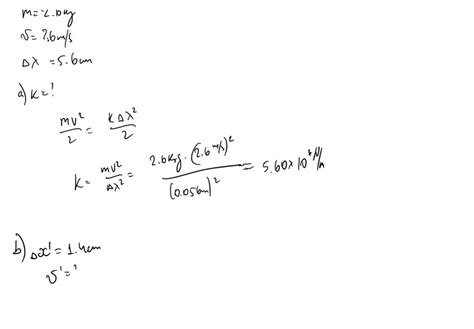 m=2.6kg
v=2.6m/s
Δx=5.6cm
a) k=?
mv²/2 = kΔx²/2
k = mv²/Δx² = 2.6kg·(2.6m/s)²/(0.056m)² = 5.60×10³N/m
b) Δx'=1.4cm
v'=?